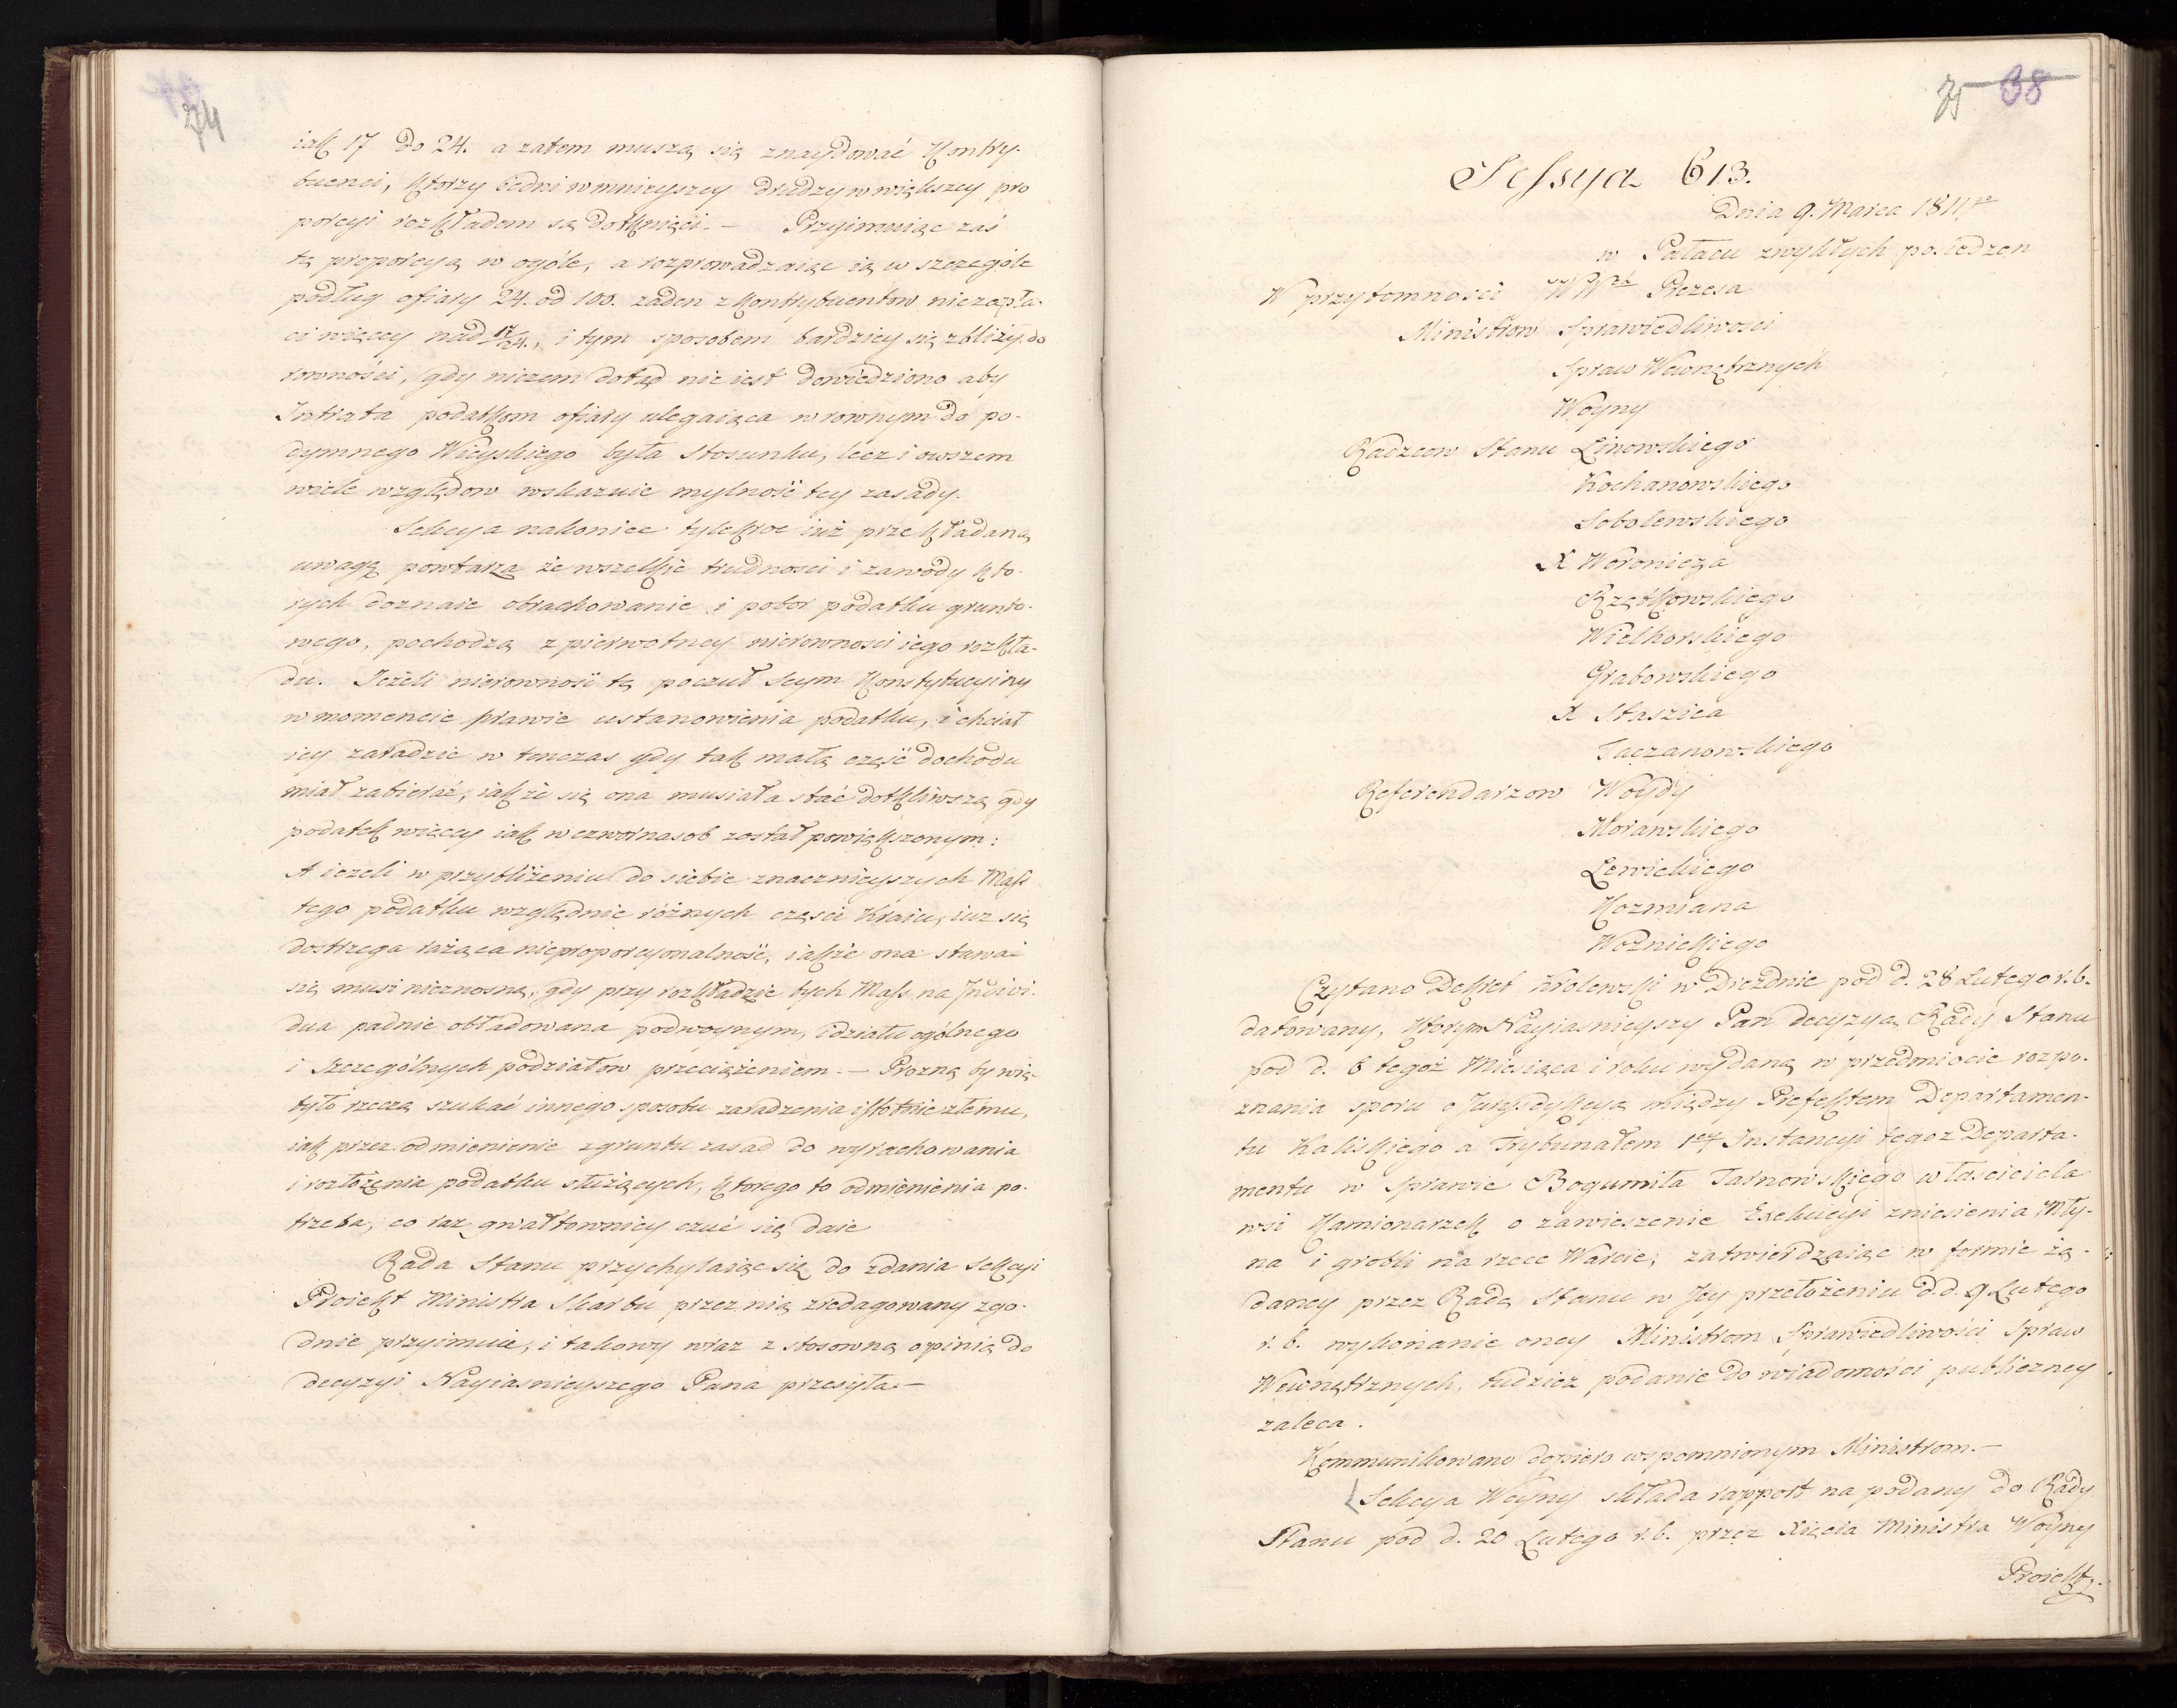 74
iak 17 do 24. a zatem muszą się znaydować Kontry-
buenci, ktorzy iedni w mnieyszey drudzy w większey pro
porcyi rozkładem są dotknięci. — Przyimuiąc zaś
tę proporcyą w ogóle, a rozprowadzaiąc ią w szczególe
podług ofiary 24. od 100. żaden z kontrybuentow nie zapła-
ci więcey nad 17/24., i tym sposobem bardziey się zbliży do
rowności, gdy niczem dotąd nie iest dowiedziono aby
Intrata podatkom ofiary ulegaiąca w rownym do po-
dymnego Wieyskiego była stosunku, lecz i owszem
wiele względow wskazuie mylność tey zasady.
Sekcya nakoniec tylekroc iuż przekładaną
uwagę powtarza że wszelkie trudności i zawody kto-
rych doznaie obrachowanie i pobor podatku grunto-
wego, pochodzą z pierwotney nierowności iego rozkła-
du. Jeżeli nierowność tę poczuł Seym Konstytucyiny
w momencie prawie ustanowienia podatku, i chciał
iey zaradzic w tenczas gdy tak małą część dochodu
miał zabierać, iakże się ona musiała stać dotkliwszą gdy
podatek więcey iak w czwornasob został powiększonym:
A ieżeli w przybliżeniu do siebie znacznieyszych Mass
tego podatku względnie różnych części Kraiu, iuż się
dostrzega rażąca nieproporcyonalność, iakże ona stawać
się musi nieznosną, gdy przy rozkładzie tych Mass na Indivi-
dua padnie obładowana podwoynym, działu ogólnego
i szczególnych podziałow przeciążeniem. — Prozną by więc
było rzeczą szukać innego sposobu zaradzenia istotnie złemu,
iak przez odmienienie z gruntu zasad do wyrachowania
i rozłożenia podatku służących, ktorego to odmienienia po-
trzeba, co raz gwałtowniey czuć się daie
Rada Stanu przychylaiąc się do zdania Sekcyi
Proiekt Ministra Skarbu przez nią zredagowany zgo-
dnie przyimuie, i takowy wraz z stosowną opinią do
decyzyi Nayiasnieyszego Pana przesyła. —
75 38
Sessya 613.
Dnia 9. Marca 1811go
w Pałacu zwykłych posiedzen
W przytomności Prezesa
Ministrow Sprawiedliwosci
Spraw Wewnętrznych
Woyny
Radzcow Stanu Linowskiego
Kochanowskiego
Sobolewskiego
X Woronicza
Rzętkowskiego
Wielhorskiego
Grabowskiego
X Staszica
Taczanowskiego
Referendarzow Woydy
Morawskiego
Lewickiego
Kozmiana
Woznickiego
Czytano Dekret Krolewski w Drezdnie pod d. 28 Lutego r. b.
datowany, ktorym Nayiasnieyszy Pan decyzyą Rady Stanu
pod d. 6 tegoż Miesiąca i roku wydaną w przedmiocie rozpo-
znania sporu o Jurysdykcyą między Prefektem Departamen-
tu Kaliskiego a Trybunałem 1ey Instancyi tegoz Departa-
mentu w sprawie Bogumiła Tarnowskiego własciciela
wsi Kamionarzek o zawieszenie Exekucyi zniesienia Mły-
na i grobli na rzece Warcie; zatwierdzaiąc w formie żą-
daney przez Radę Stanu w Jey przełożeniu d. d. 9 Lutego
r. b. wykonanie oney Ministrom Sprawiedliwości Spraw
Wewnętrznych, tudzież podanie do wiadomości publiczney
zaleca.
Kommunikowano dopiero wspomnionym Ministrom. —
Sekcya Woyny składa rapport na podany do Rady
Stanu pod d. 20 Lutego r. b. przez Xięcia Ministra Woyny
Proiekt.